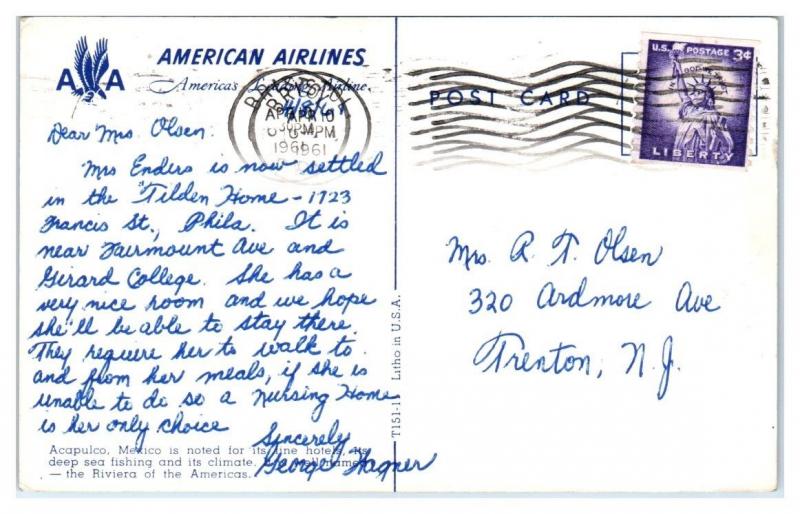 AMERICAN AIRLINES
AA
America's Leading Airline
BRISTOL
APR 10
PM
1961
POST CARD
U.S. POSTAGE 3¢
IN GOD WE TRUST
LIBERTY
Dear Mrs Olsen:
Mrs Enders is now settled
in the "Tilden Home - 1723
Francis St., Phila. It is
near Fairmount Ave and
Girard College. She has a
very nice room and we hope
she'll be able to stay there.
They require her to walk to
and from her meals, if she is
unable to do so a Nursing Home
is her only choice
Sincerely
George Wagner
Acapulco, Mexico is noted for its fine hotels, its
deep sea fishing and its climate.
— the Riviera of the Americas.
T151-1 Litho in U.S.A.
Mrs R. T. Olsen
320 Ardmore Ave
Trenton, N.J.